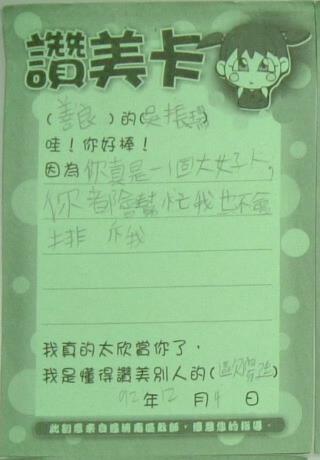 讚美卡
(善良)的(吳振瑋)
哇！你好棒！
因為你真是一個大好人，
你都會幫忙我也不會
排斥我
我真的太欣賞你了，
我是懂得讚美別人的()
92年12月4日